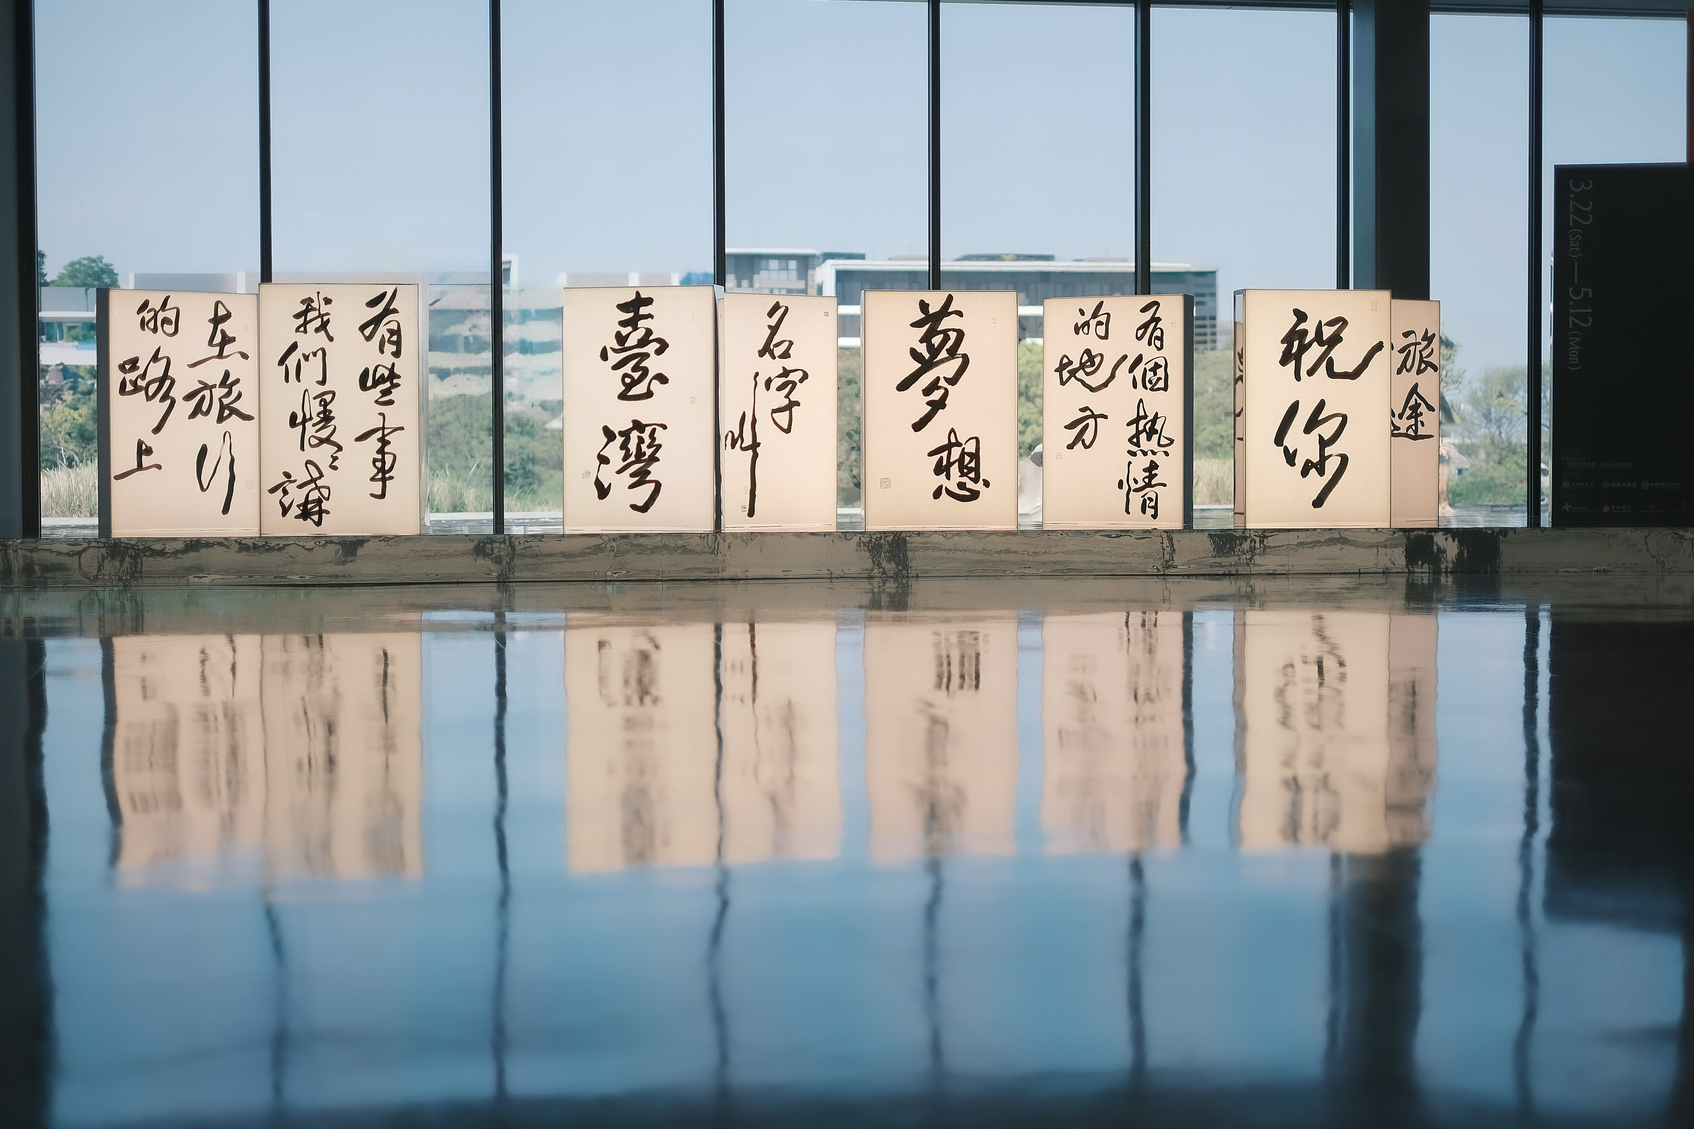 有些事
我們慢慢講
在旅行
的路上
臺灣
名字
叫
夢想
有個熱情
的地方
祝你
旅
途
3.22 (Sat) — 5.12 (Mon)